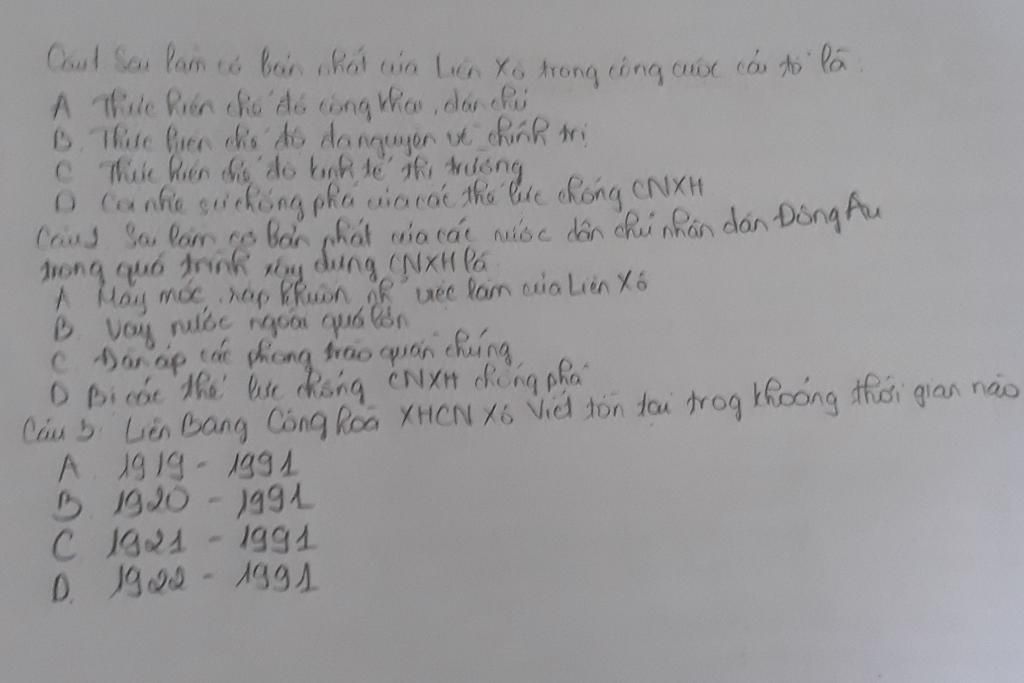 Câu1 Sai lầm cơ bản nhất của Liên Xô trong công cuộc cải tổ là.
A Thực hiện chế độ công khai, dân chủ
B. Thực hiện chế độ đa nguyên về chính trị
C Thực hiện chế độ kinh tế thị trường
D Coi nhẹ sự chống phá của các thế lực chống CNXH
Câu2 Sai lầm cơ bản nhất của các nước dân chủ nhân dân Đông Âu
trong quá trình xây dựng CNXH là
A Máy móc, rập khuôn việc làm của Liên Xô
B. Vay nước ngoài quá lớn
C Đàn áp các phong trào quần chúng
D Bị các thế lực chống CNXH chống phá
Câu 3: Liên Bang Cộng hoà XHCN Xô Viết tồn tại trog khoảng thời gian nào
A 1919 - 1991
B. 1920 - 1991
C 1921 - 1991
D. 1922 - 1991